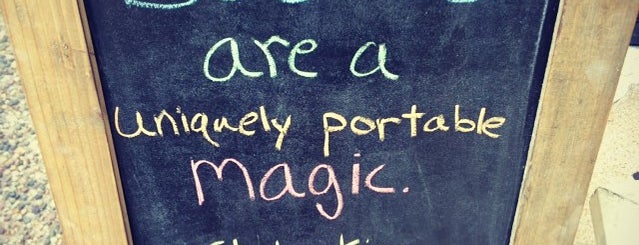 are a
uniquely portable
magic.